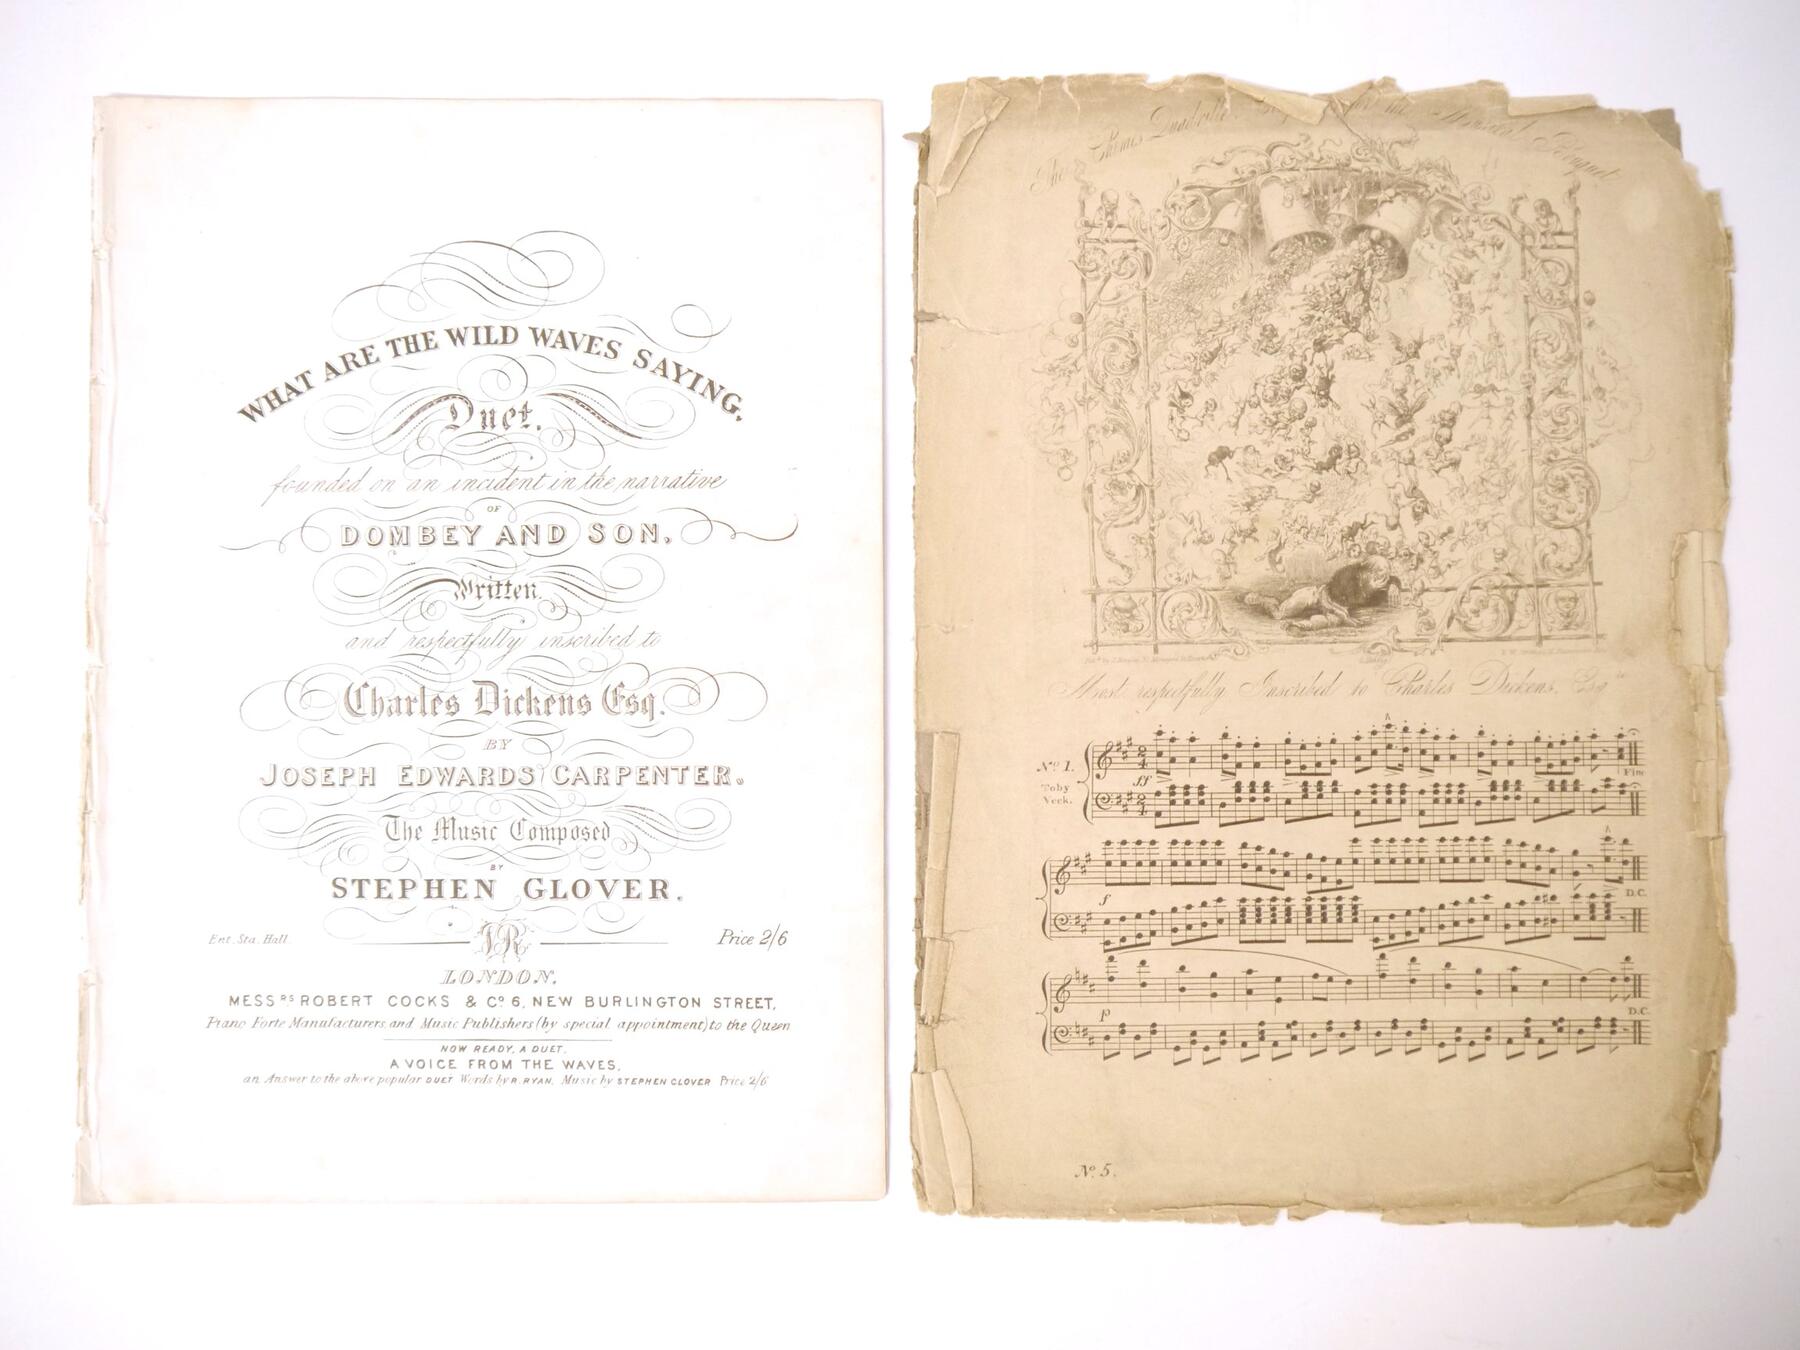 WHAT ARE THE WILD WAVES SAYING,
Duet.
founded on an incident in the narrative
OF
DOMBEY AND SON,
Written
and respectfully inscribed to
Charles Dickens Esq.
BY
JOSEPH EDWARDS CARPENTER.
The Music Composed
BY
STEPHEN GLOVER.
Ent. Sta. Hall.
Price 2/6
LONDON,
MESSRS ROBERT COCKS & Co 6, NEW BURLINGTON STREET,
Piano Forte Manufacturers, and Music Publishers (by special appointment) to the Queen
NOW READY, A DUET,
A VOICE FROM THE WAVES,
an Answer to the above popular DUET Words by R. RYAN, Music by STEPHEN GLOVER Price 2/6
The Chimes Quadrille, for the Musical Bouquet
Most respectfully Inscribed to Charles Dickens, Esqre
No 1.
Toby
Veck.
ff
Fine
f
D.C.
p
D.C.
No. 5.